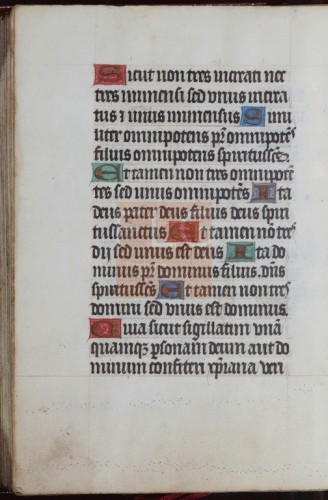 Sicut non tres increati nec
tres inmensi sed vnus increa
tus ⁊ vnus inmensus Simi
liter omnipotens pr̄ omnipotēs
filius omnipotens spiritussc̄s
Et tamen non tres omnipotē
tes sed vnus omnipotēs Ita
deus pater deus filius deus spiri
tussanctus Et tamen nō tres
dij sed vnus est deus Ita do
minus pr̄ dominus filius dn̄s
spiritussc̄s Et tamen non tres
domini sed vnus est dominus
Quia sicut sigillatim vnā
quamqꝫ psonam deum aut do
minum confiteri xp̄iana veri